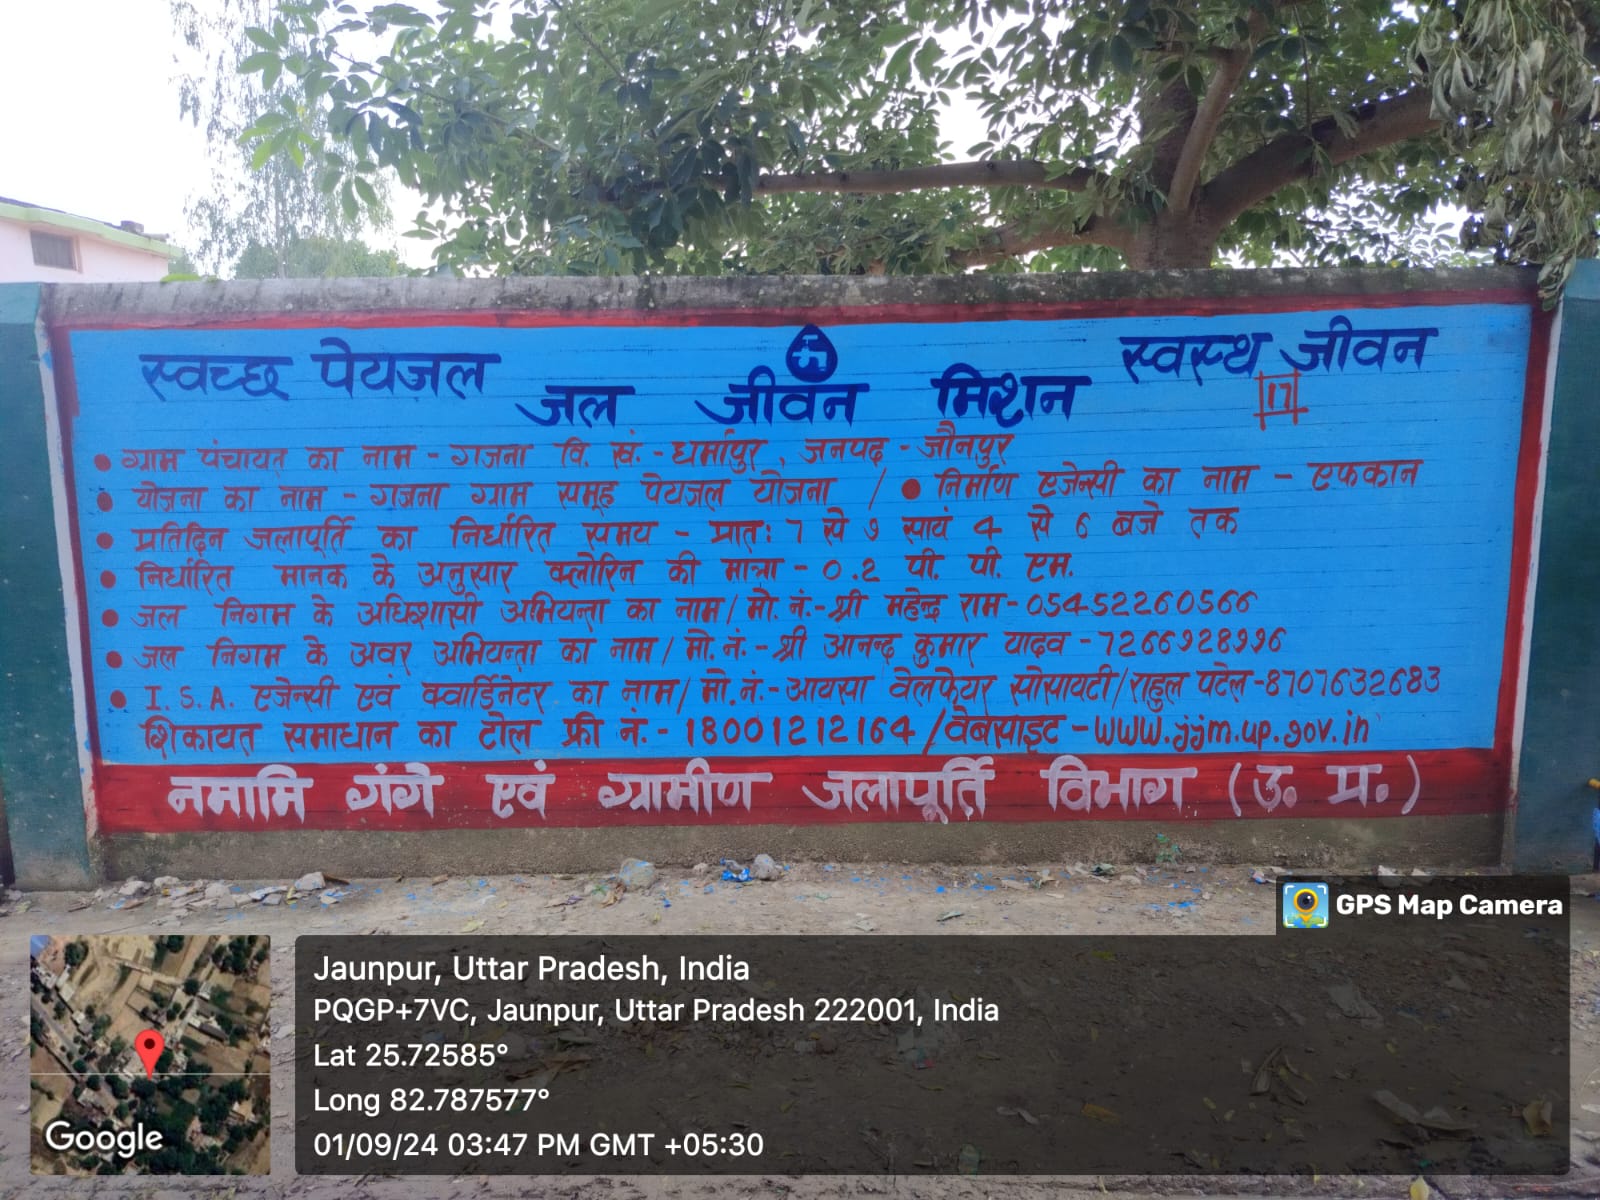 स्वच्छ पेयजल स्वस्थ जीवन
जल जीवन मिशन
17
• ग्राम पंचायत का नाम - गजना वि. खं. - धर्मापुर , जनपद - जौनपुर
• योजना का नाम - गजना ग्राम समूह पेयजल योजना / • निर्माण एजेन्सी का नाम - एफकान
• प्रतिदिन जलापूर्ति का निर्धारित समय - प्रातः 7 से ९ सायं 4 से 6 बजे तक
• निर्धारित मानक के अनुसार क्लोरिन की मात्रा - 0.2 पी. पी. एम.
• जल निगम के अधिशाषी अभियन्ता का नाम / मो. नं. - श्री महेन्द्र राम - 05452260566
• जल निगम के अवर अभियन्ता का नाम / मो. नं. - श्री आनन्द कुमार यादव - 7266928996
• I. S. A. एजेन्सी एवं क्वार्डिनेटर का नाम / मो. नं. - आयसा वेलफेयर सोसायटी / राहुल पटेल - 8707632683
शिकायत समाधान का टोल फ्री नं. - 18001212164 / वेबसाइट - www.jjm.up.gov.in
नमामि गंगे एवं ग्रामीण जलापूर्ति विभाग (उ. प्र.)
GPS Map Camera
Jaunpur, Uttar Pradesh, India
PQGP+7VC, Jaunpur, Uttar Pradesh 222001, India
Lat 25.72585°
Long 82.787577°
01/09/24 03:47 PM GMT +05:30
Google